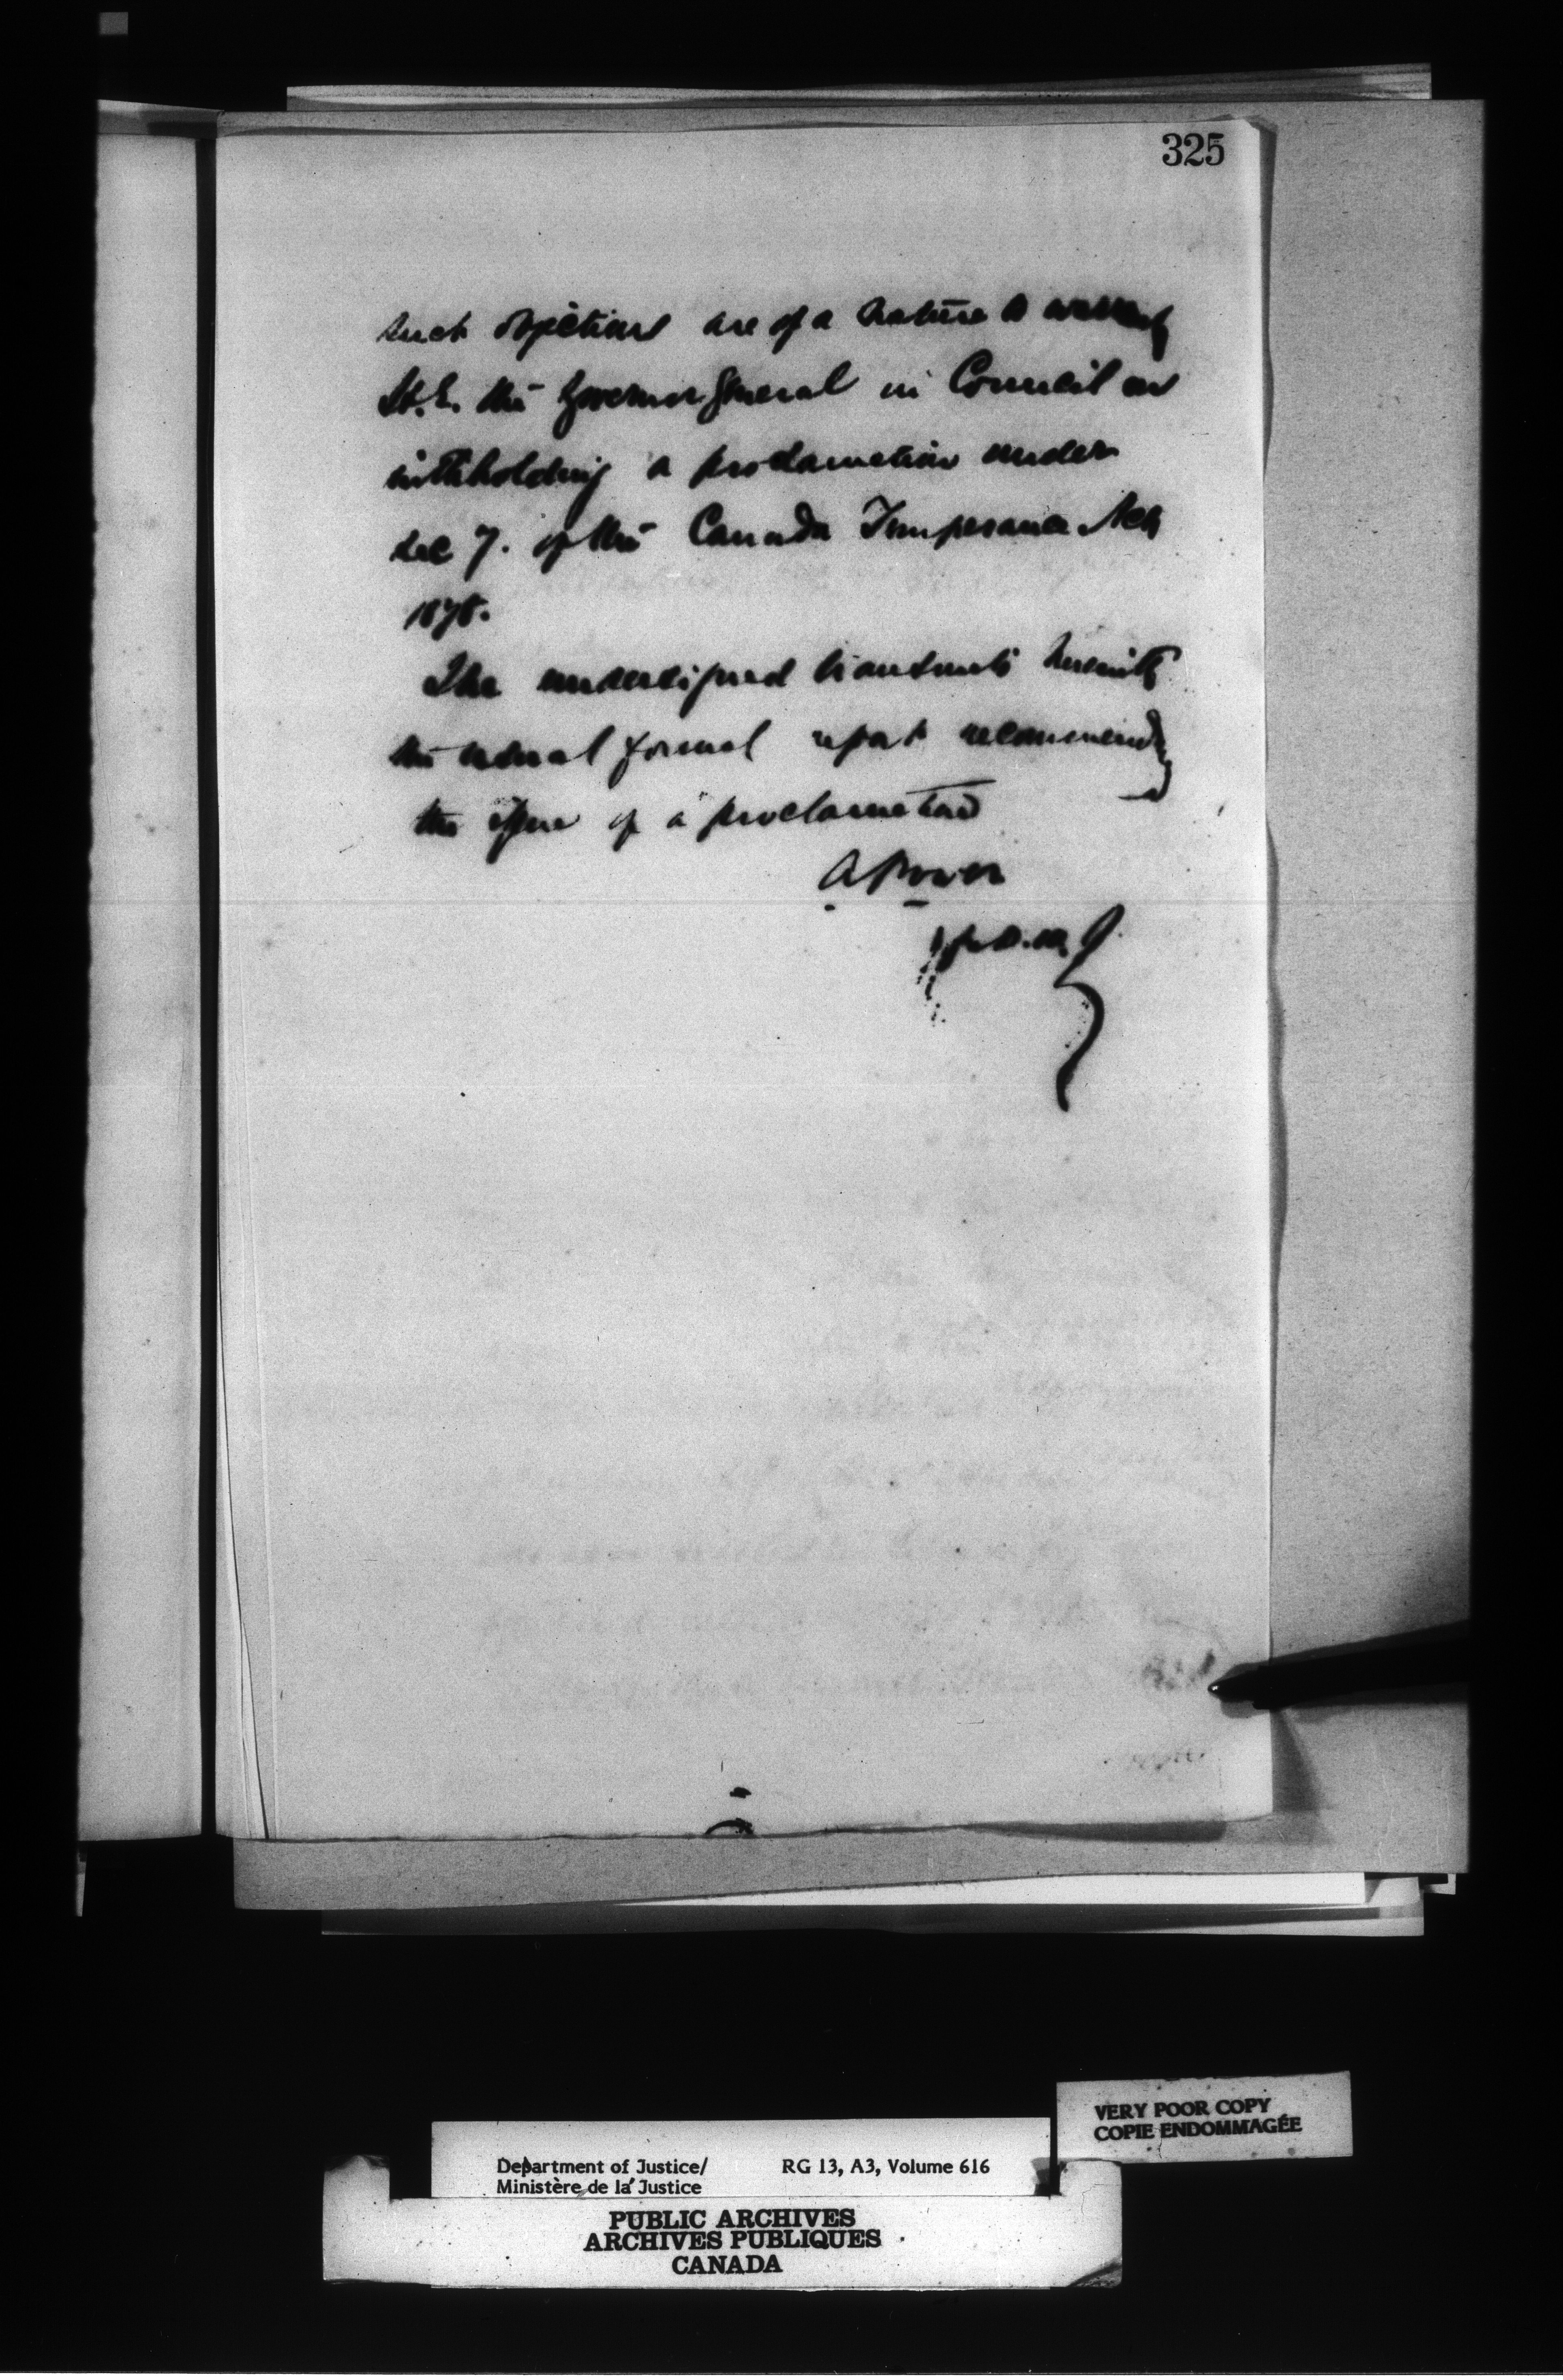 325
such objections are of a nature to warrant
H.E. the Governor General in Council in
withholding a proclamation under
sec 7. of the Canada Temperance Act
1878.
The undersigned transmits herewith
the usual formal report recommending
the issue of a proclamation
A Power
for D.M.J.
VERY POOR COPY
COPIE ENDOMMAGÉE
Department of Justice/ RG 13, A3, Volume 616
Ministère de la Justice
PUBLIC ARCHIVES
ARCHIVES PUBLIQUES
CANADA